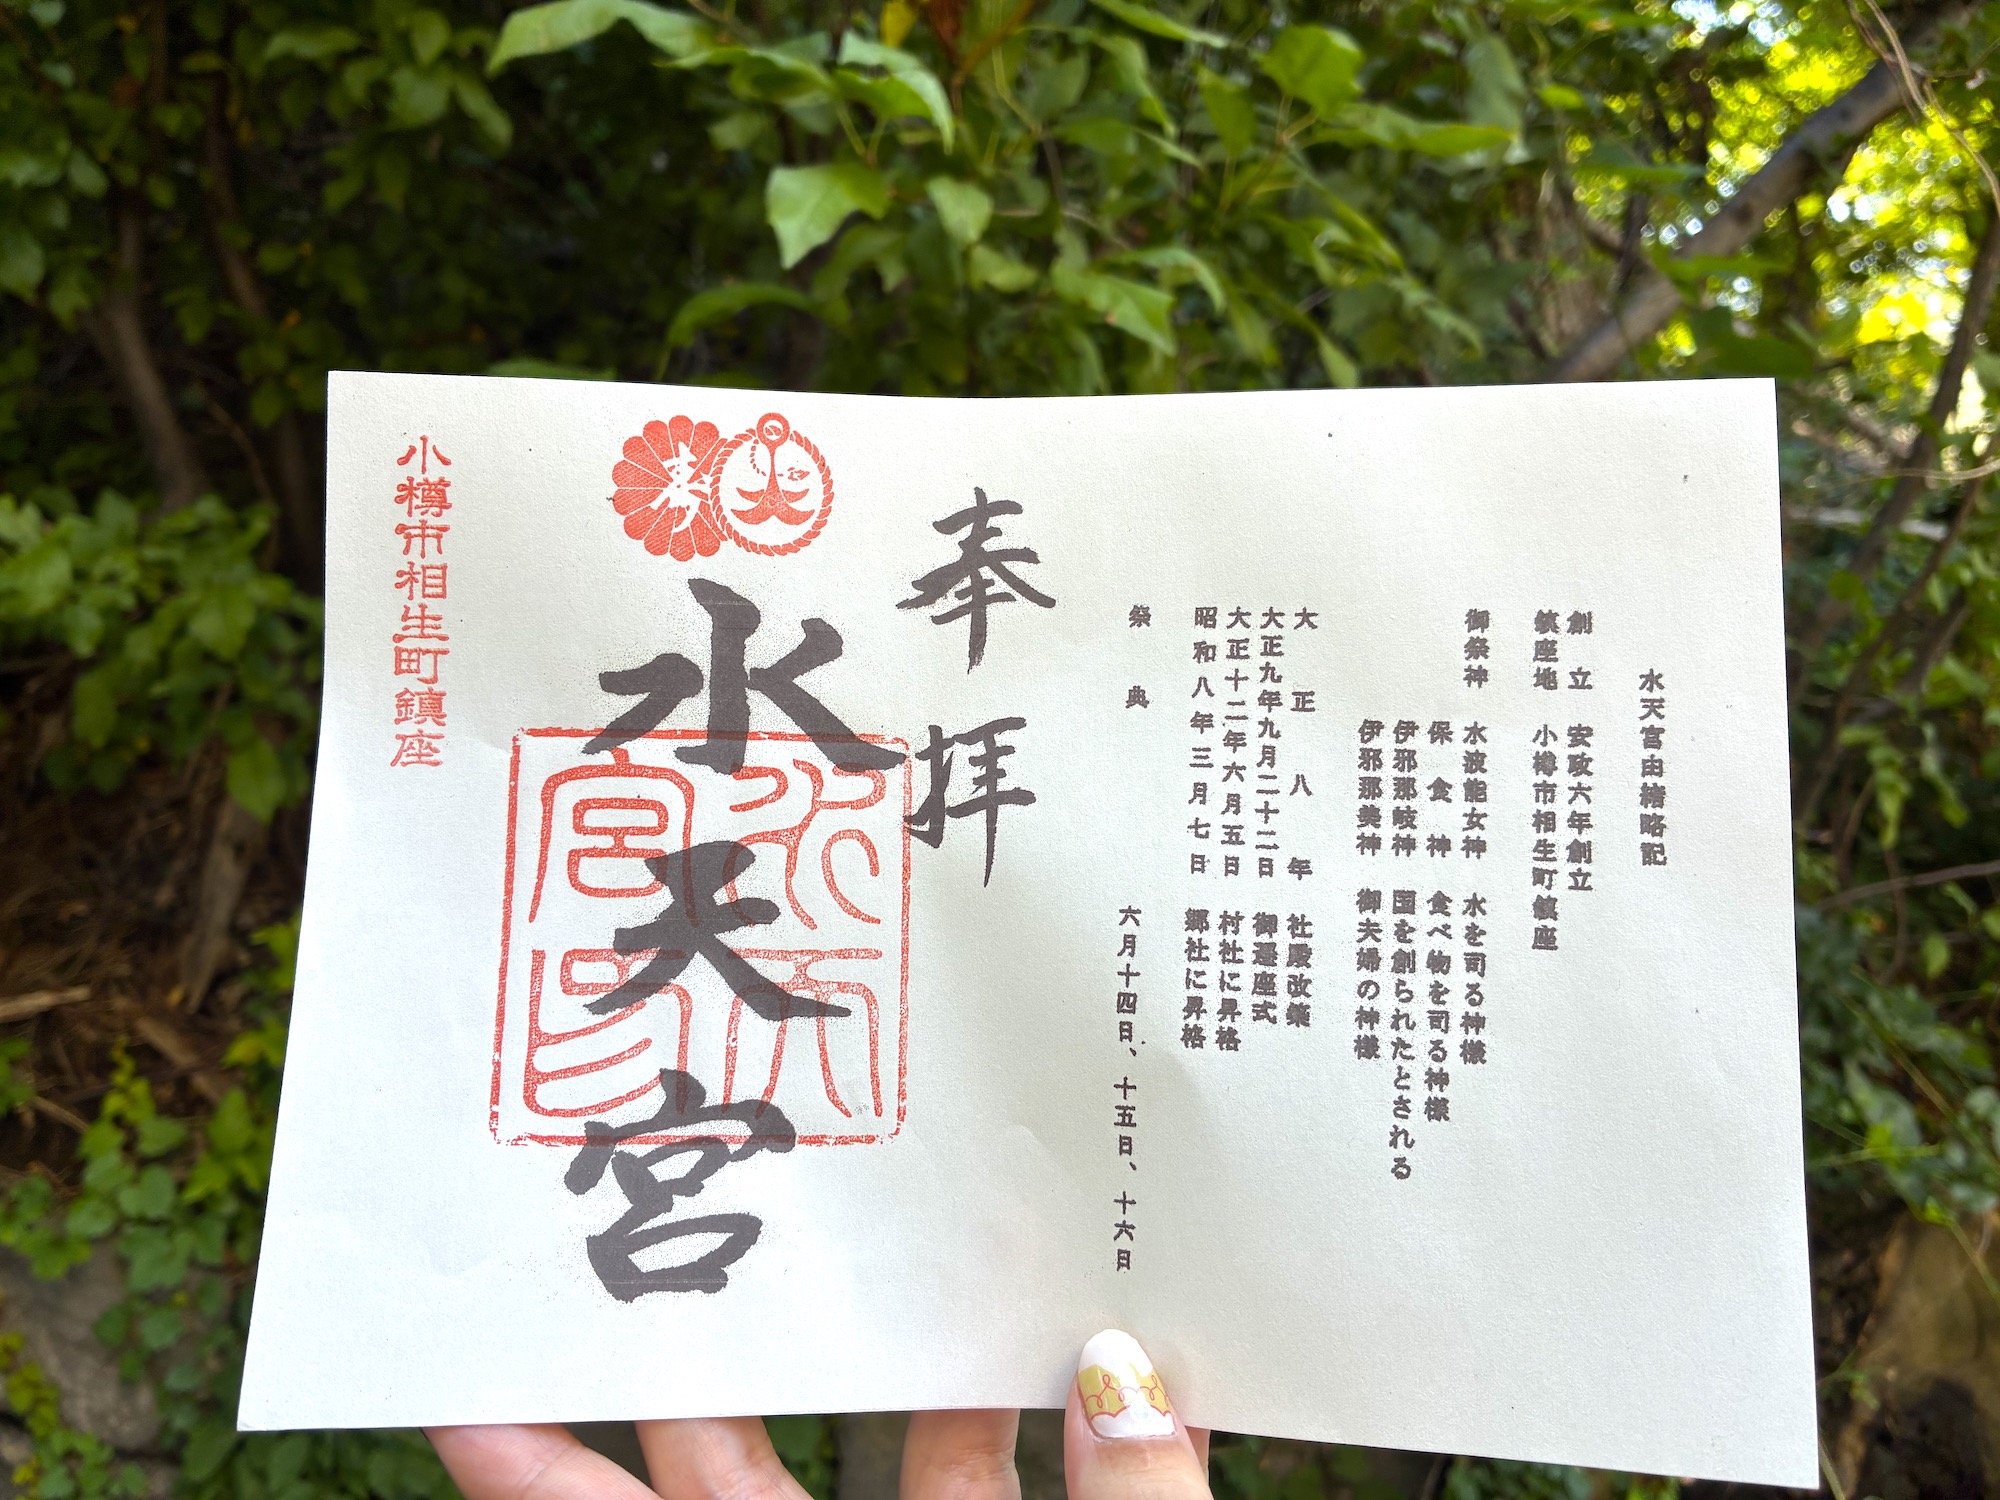 水天宮由緒略記
創立 安政六年創立
鎮座地 小樽市相生町鎮座
御祭神 水波能女神 水を司る神様
保食神 食べ物を司る神様
伊邪那岐神 国を創られたとされる
伊邪那美神 御夫婦の神様
大正八年 社殿改築
大正九年九月二十二日 御遷座式
大正十二年六月五日 村社に昇格
昭和八年三月七日 郷社に昇格
祭典 六月十四日、十五日、十六日
奉拝
水天宮
水天
宮印
小樽市相生町鎮座